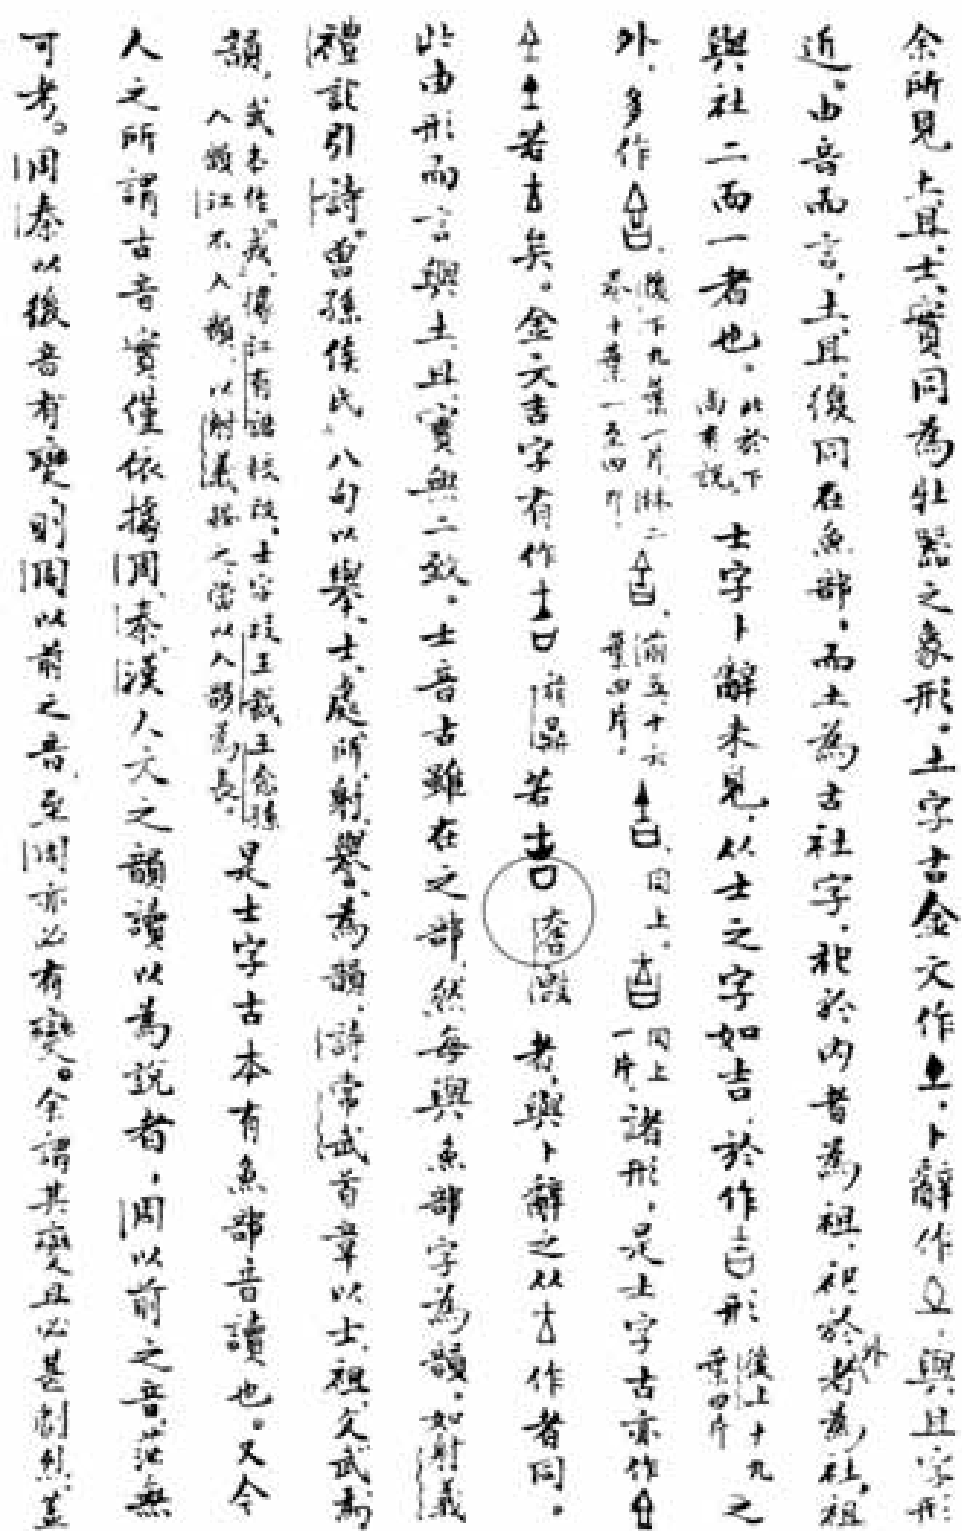 余所見土、且、士、實同為牡器之象形。土字古金文作⊥，卜辭作，與且字形
近。由音而言，土、且復同在魚部。而土為古社字，祀於內者為祖，祀於外者為社，祖
與社二而一者也。此於下尚有說。士字卜辭未見，从士之字如吉，於作吉形後上十九葉四片之
外，多作後下九葉一片林二卷十葉一至四片，前五、十六葉四片，同上，同上一片諸形，是士字古亦作
若士矣。金文吉字有作吉旅鼎若吉者，與卜辭之从作者同。
此由形而言與土、且實無二致。士音古雖在之部，然每與魚部字為韻。如射義
禮記引詩「曾孫侯氏」八句以舉、士、處、所、射、譽、為韻，詩常武首章以士、祖、父、武為
韻，武本作戎，據江有誥校改。士字段玉裁王念孫入韻江不入韻，以射義按之，當以入韻為長。是士字古本有魚部音讀也。又今
人之所謂古音實僅依據周、秦、漢人文之韻讀以為說者，周以前之音，茫無
可考。周秦以後音有變，則周以前之音，至周亦必有變。余謂其變且必甚劇烈，蓋